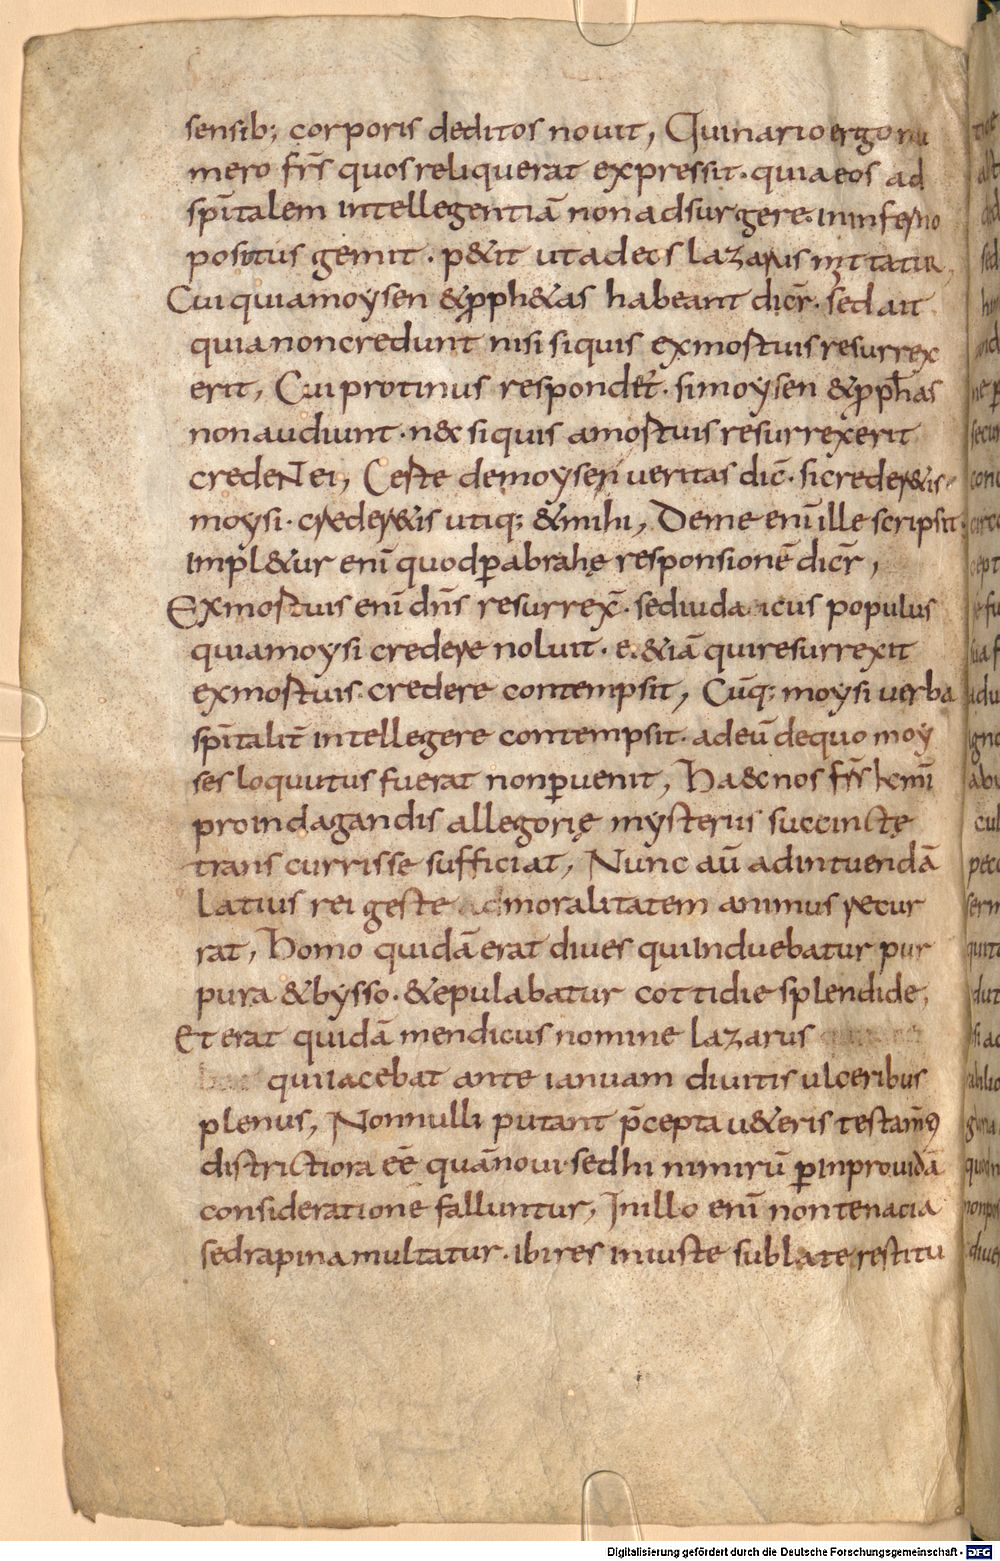 sensib; corporis deditos nouit, Quinario ergo nu
mero fr̄s quos reliquerat expressit · quia eos ad
sp̄italem intellegentiā non adsurgere · in inferno
positus gemit · p&it ut ad eos lazarus mittatur,
Cui quia moysen &p̱ph&as habeant dicr̄ · sed ait
quia non credunt nisi si quis ex mortuis resurrex
erit, Cui protinus respondet · si moysen &p̱ph̄as
non audiunt · n&c si quis a mortuis resurrexerit
credeNt ei, Certe de moysen ueritas dic̄ · si creder&is
moysi · creder&is utiq; &mihi, De me enī ille scripsit ·
impl&ur enī quod p̱ abrahę responsionē dicr̄,
Ex mortuis enī dn̄s resurrex̄ · sed iudaicus populus
quia moysi credere noluit · ei &iā qui resurrexit
ex mortuis credere contempsit, Cūq; moysi uerba
sp̄italit̄ intellegere contempsit · ad eū de quo moy
ses loquutus fuerat non p̱uenit, Ha&c nos fr̄s k̄mi
pro indagandis allegorię mysteriis succinctę
transcurrisse sufficiat, Nunc aū ad intuendā
latius rei geste moralitatem animus recur
rat, Homo quidā erat diues qui induebatur pur
pura &bysso · &epulabatur cottidie splendide,
Et erat quidā mendicus nomine lazarus
qui iacebat ante ianuam diuitis ulceribus
plenus, Nonnulli putant p̄cepta u&eris testam̄ti
districtiora eē quā noui · sed hi nimirū p̱ inprouidā
consideratione falluntur, In illo enī non tenacia
sed rapina multatur · ibi res iniuste sublate restitu
Digitalisierung gefördert durch die Deutsche Forschungsgemeinschaft - DFG